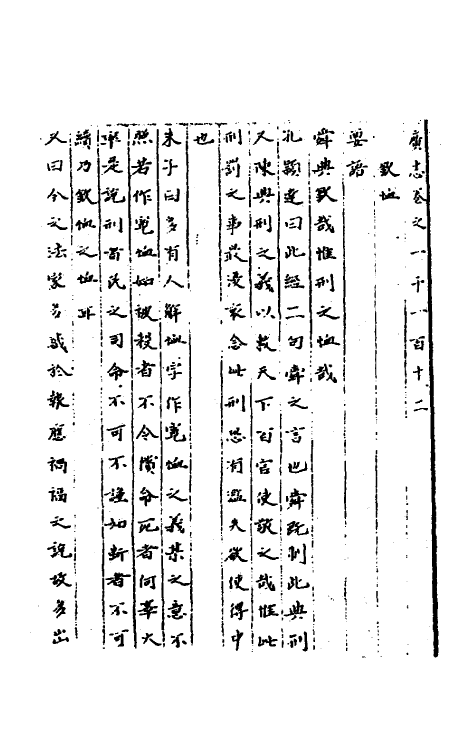 廣志卷之一千一百十二
欽恤
要語
舜典欽哉惟刑之恤哉
孔穎達曰此經二句舜之言也舜既制此典刑
又陳典刑之義以敕天下百官使敬之哉惟此
刑罰之事最須憂念此刑恐有濫失欲使得中
也
朱子曰多有人解恤字作寬恤之義某之意不
然若作寬恤如被殺者不令償命死者何辜大
率是說刑者民之司命不可不謹如斷者不可
續乃欽恤之恤耳
又曰今之法家多惑於報應禍福之說故多出